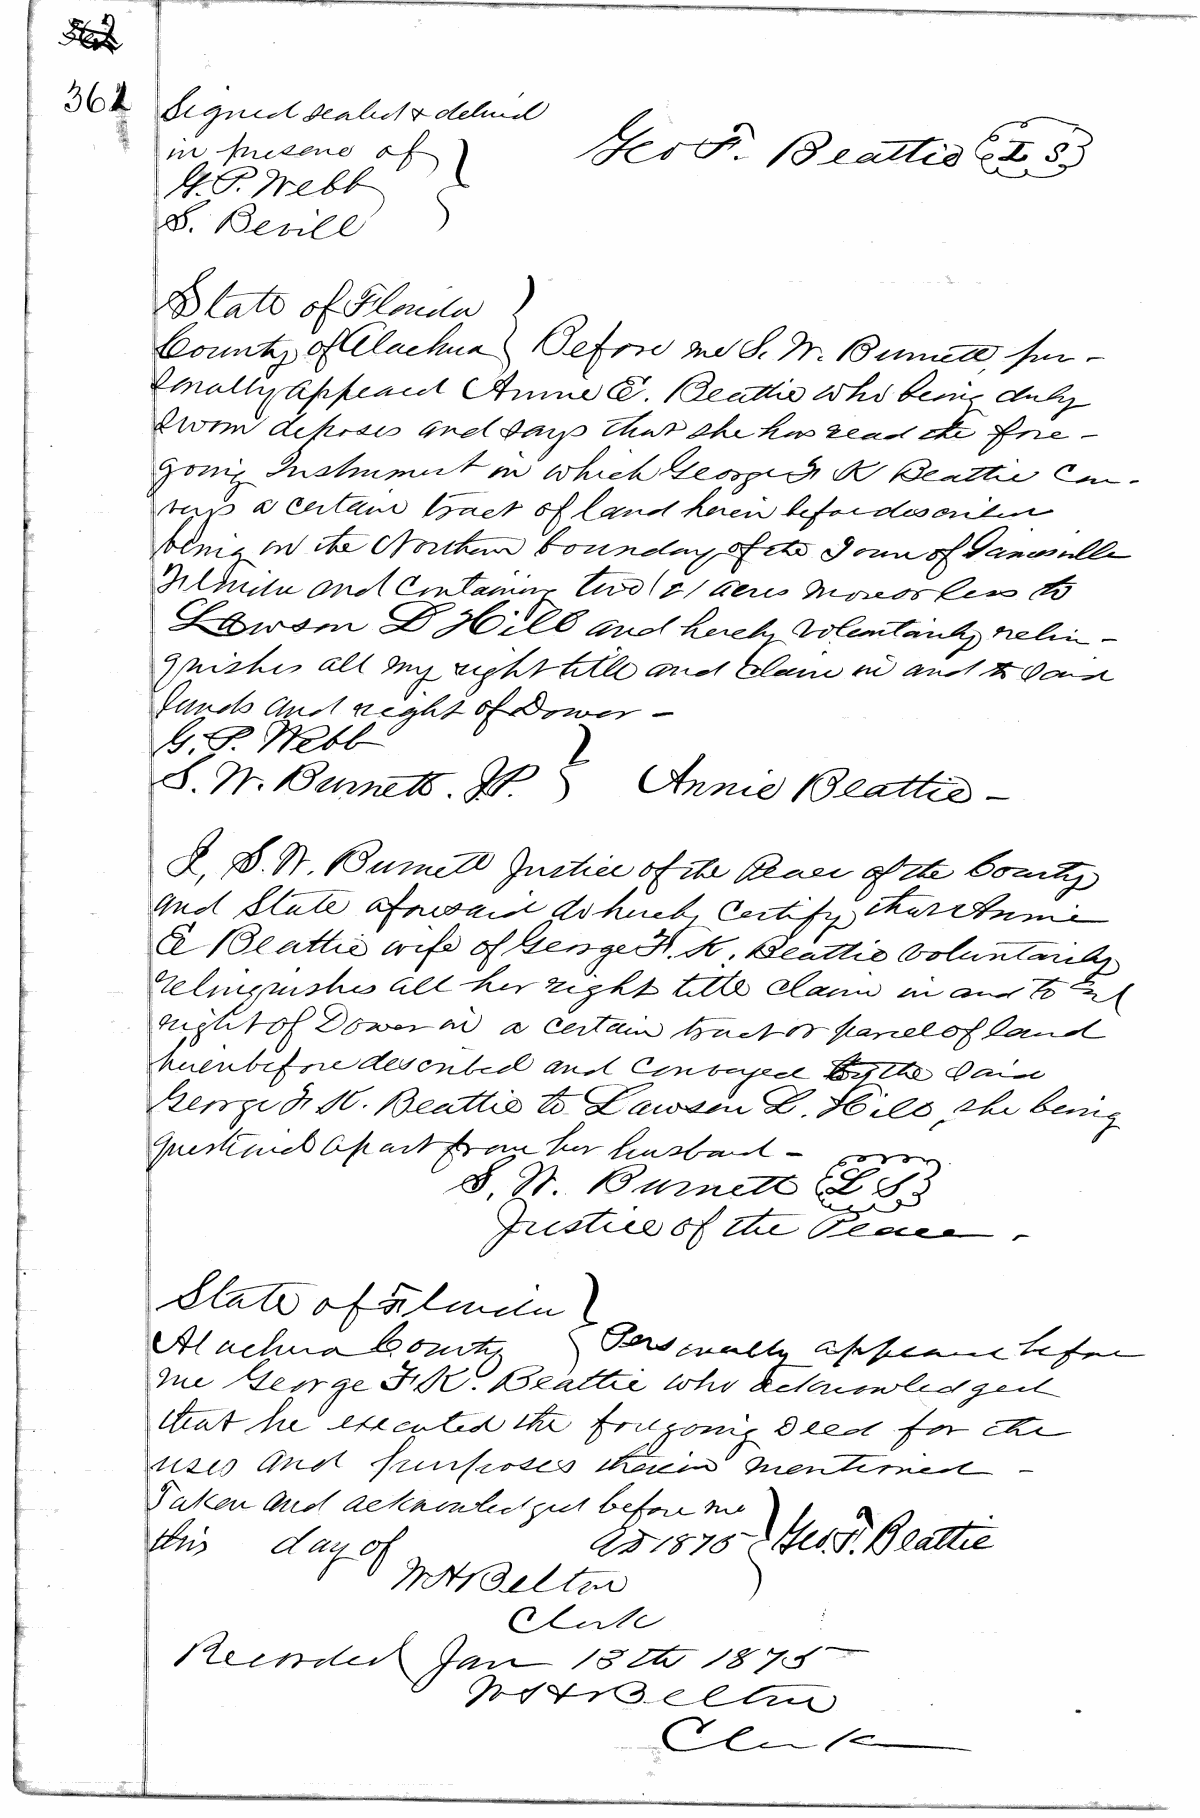 362
Signed sealed & delivd
in presence of
G. P. Webb
S. Bevill
Geo F. Beattie L S
State of Florida
County of Alachua Before me S. W. Burnett, per-
sonally appeared Annie E. Beattie who being duly
sworn deposes and says that she has read the fore-
going Instrument in which George F K Beattie con-
veys a certain tract of land herein before described
being on the Northern boundary of the Town of Gainesville
Florida and containing two (2) acres more or less to
Lawson L Hill and hereby voluntarily relin-
quishes all my right title and claim in and to said
lands and right of Dower -
G. P. Webb
S. W. Burnett. J.P. Annie Beattie -
I, S. W. Burnett Justice of the Peace of the County
and State aforesaid do hereby certify that Annie
E Beattie wife of George F. K. Beattie voluntarily
relinquishes all her right title claim in and to and
right of Dower in a certain tract or parcel of land
hereinbefore described and conveyed by the said
George F. K. Beattie to Lawson L. Hill, she being
questioned apart from her husband -
S. W. Burnett L S
Justice of the Peace.
State of Florida
Alachua County Personally appeared before
me George F. K. Beattie who acknowledged
that he executed the foregoing Deed for the
uses and purposes therein mentioned -
Taken and acknowledged before me
this day of AD 1875 Geo. F. Beattie
W H Belton
Clerk
Recorded Jan 13th 1875
W H Belton
Clerk